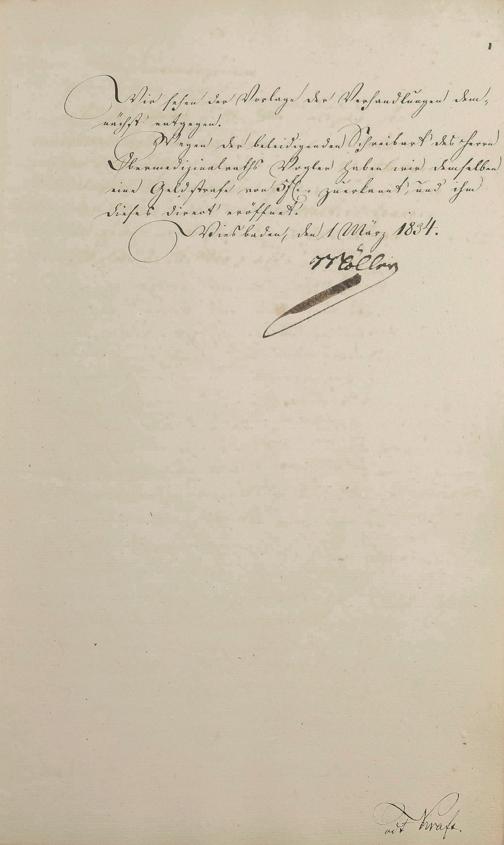 Wir sehen der Vorlage der Verhandlungen dem-
nächst entgegen.
Wegen der beleidigenden Schreibart des Herrn
Obermedizinalraths Vogler haben wir demselben
eine Geldstrafe von 5 fl. zuerkannt und ihm
dieses direct eröffnet.
Wiesbaden, den 1 März 1834.
Möller
vdt Kraft.